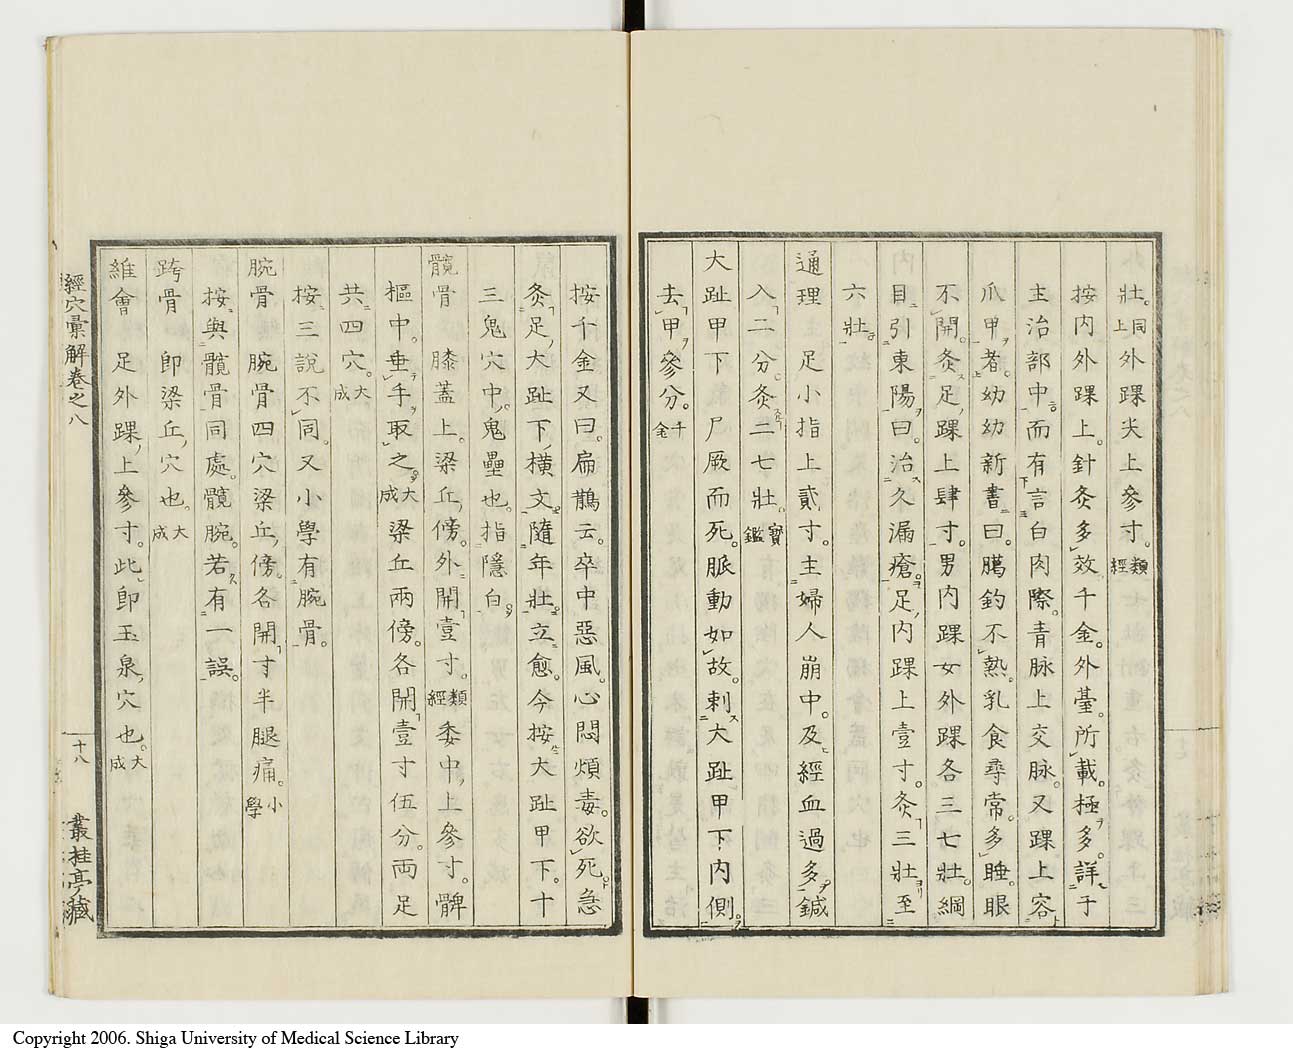 壯。同上外踝尖上參寸。類經
按內外踝上。針灸多效千金。外臺。所載。極多。詳于
主治部中而有言白肉際。青脉上交脉。又踝上容
爪甲者。幼幼新書曰。臈釣不熟。乳食尋常。多睡。眼
不開。灸足踝上肆寸。男內踝女外踝各三七壯。綱
目引東陽曰。治久漏瘡。足內踝上壹寸。灸三壯至
六壯
通理　足小指上貳寸。主婦人崩中。及經血過多鍼
入二分。灸二七壯。寶鑑
大趾甲下　尸厥而死。脈動如故。刺大趾甲下內側。
去甲參分。千金
按千金又曰。扁鵲云。卒中惡風。心悶煩毒。欲死。急
灸足大趾下橫文。隨年壯。立愈。今按大趾甲下。十
三鬼穴中。鬼壘也。指隱白。
髖骨　膝蓋上。梁丘傍。外開壹寸。類經委中上參寸。髀
樞中。垂手取之。大成梁丘兩傍。各開壹寸伍分。兩足
共四穴。大成
按三說不同。又小學有腕骨。
腕骨　腕骨四穴梁丘傍。各開寸半腿痛。小學
按與髖骨同處。髖腕。若有一誤。
跨骨　卽梁丘穴也。大成
維會　足外踝上參寸。此卽玉泉穴也。大成
經穴彙解卷之八
十八
叢桂亭藏
Copyright 2006. Shiga University of Medical Science Library